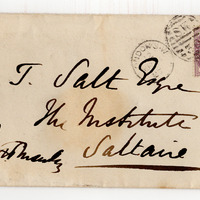 T. Salt Esqre
The Institute
Saltaire